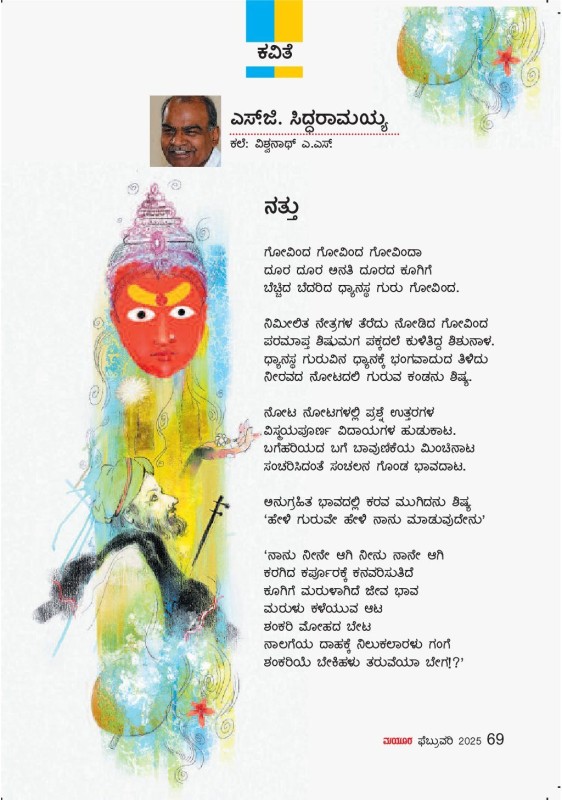 ಕವಿತೆ
ಎಸ್‌ಜಿ. ಸಿದ್ಧರಾಮಯ್ಯ
ಕಲೆ: ವಿಶ್ವನಾಥ್ ಎ.ಎಸ್.
ನತ್ತು
ಗೋವಿಂದ ಗೋವಿಂದ ಗೋವಿಂದಾ
ದೂರ ದೂರ ಅನತಿ ದೂರದ ಕೂಗಿಗೆ
ಬೆಚ್ಚಿದ ಬೆದರಿದ ಧ್ಯಾನಸ್ಥ ಗುರು ಗೋವಿಂದ.
ನಿಮೀಲಿತ ನೇತ್ರಗಳ ತೆರೆದು ನೋಡಿದ ಗೋವಿಂದ
ಪರಮಾಪ್ತ ಶಿಷುಮಗ ಪಕ್ಕದಲೆ ಕುಳಿತಿದ್ದ ಶಿಶುನಾಳ.
ಧ್ಯಾನಸ್ಥ ಗುರುವಿನ ಧ್ಯಾನಕ್ಕೆ ಭಂಗವಾದುದ ತಿಳಿದು
ನೀರವದ ನೋಟದಲಿ ಗುರುವ ಕಂಡನು ಶಿಷ್ಯ.
ನೋಟ ನೋಟಗಳಲ್ಲಿ ಪ್ರಶ್ನೆ ಉತ್ತರಗಳ
ವಿಸ್ಮಯಪೂರ್ಣ ವಿದಾಯಗಳ ಹುಡುಕಾಟ.
ಬಗೆಹರಿಯದ ಬಗೆ ಬಾವುಣಿಕೆಯ ಮಿಂಚಿನಾಟ
ಸಂಚರಿಸಿದಂತೆ ಸಂಚಲನ ಗೊಂಡ ಭಾವದಾಟ.
ಅನುಗ್ರಹಿತ ಭಾವದಲ್ಲಿ ಕರವ ಮುಗಿದನು ಶಿಷ್ಯ
‘ಹೇಳಿ ಗುರುವೇ ಹೇಳಿ ನಾನು ಮಾಡುವುದೇನು’
‘ನಾನು ನೀನೇ ಆಗಿ ನೀನು ನಾನೇ ಆಗಿ
ಕರಗಿದ ಕರ್ಪೂರಕ್ಕೆ ಕನವರಿಸುತಿದೆ
ಕೂಗಿಗೆ ಮರುಳಾಗಿದೆ ಜೀವ ಭಾವ
ಮರುಳು ಕಳೆಯುವ ಆಟ
ಶಂಕರಿ ಮೋಹದ ಬೇಟ
ನಾಲಗೆಯ ದಾಹಕ್ಕೆ ನಿಲುಕಲಾರಳು ಗಂಗೆ
ಶಂಕರಿಯೆ ಬೇಕಿಹಳು ತರುವೆಯಾ ಬೇಗ!?’
ಮಯೂರ ಫೆಬ್ರುವರಿ 2025 69